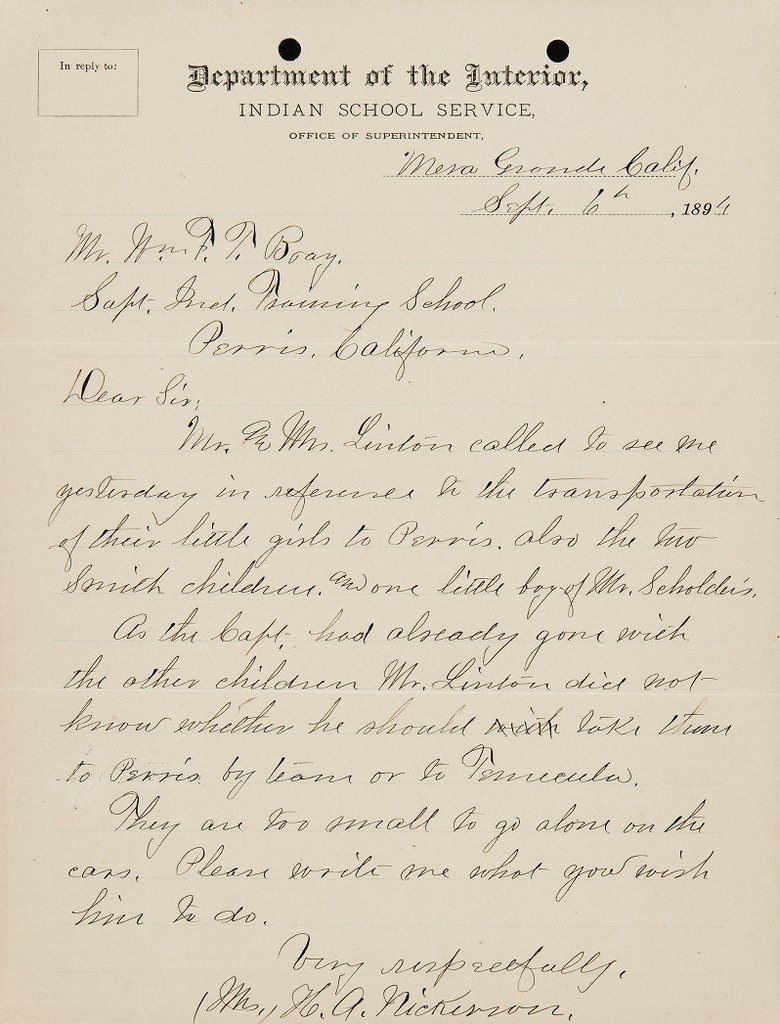 In reply to:
Department of the Interior,
INDIAN SCHOOL SERVICE,
OFFICE OF SUPERINTENDENT,
Mesa Grande Calif.
Sept. 6th, 1894
Mr. Wm F. T. Bray.
Supt. Ind. Training School.
Perris, California.
Dear Sir;
Mr. & Mrs. Linton called to see me
yesterday in reference to the transportation
of their little girls to Perris. also the two
Smith children. and one little boy of Mr. Scholder's.
As the Capt. had already gone with
the other children Mr. Linton did not
know whether he should with take them
to Perris by team or to Temecula.
They are too small to go alone on the
cars. Please write me what you wish
him to do.
Very respectfully,
(Mrs.) H. A. Nickerson.